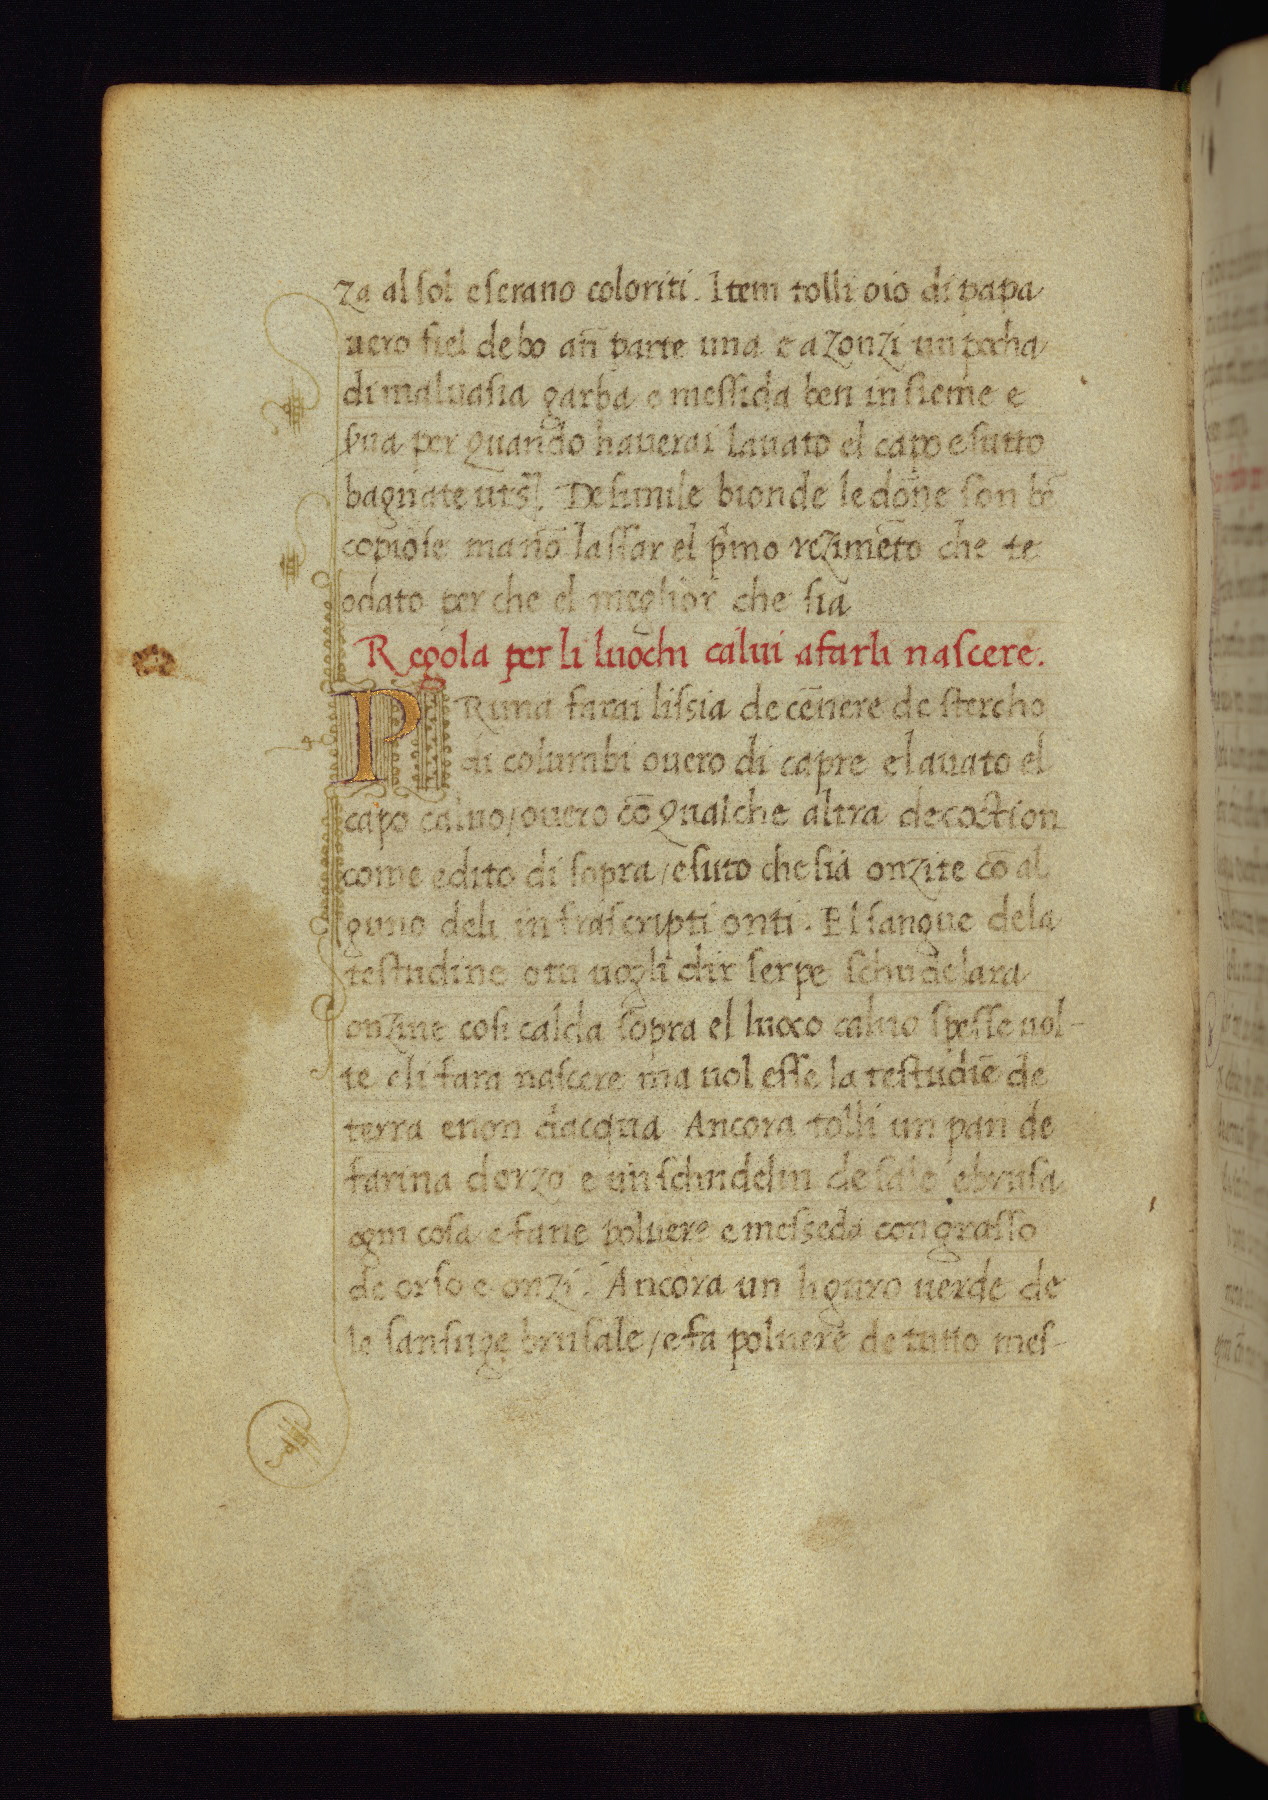 za al sol e serano coloriti. Item tolli oio di papa
uero fiel de bo añ parte una e azonzi un pocha
di maluasia garba e messida ben insieme e
sua per quando hauerai lauato el capo e sutto
bagnate uts̃. De simile bionde le dõne son bẽ
copiose ma nõ lassar el p̃mo rezimẽto che te
o dato per che el meglior che sia
Regola per li luochi calui a farli nascere.
PRima farai lissia de cẽnere de stercho
di columbi ouero di capre e lauato el
capo caluo/ouero cõ qualche altra decoction
come e dito di sopra/e suto che sia onzite cõ al
guno deli infrascripti onti. El sangue dela
testudine o tu uogli dir serpe schudelara
onzine cosi calda sopra el luoco caluo spesse uol-
te eli fara nascere ma uol esse la testudiẽ de
terra e non dacqua Ancora tolli un pan de
farina dorzo e un schudelin de sale e brusa
ogni cosa e fane poluere e messeda con grasso
de orso e onzi. Ancora un liguro uerde de
le sansuge brusale/e fa poluere de tutto mes-